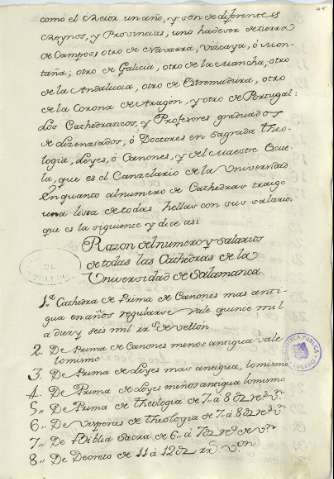 como el Rector un año, y son de diferentes
Reynos, y Provincias, uno ha de ser de tierra
de Campos, otro de Navarra, Vizcaya, ò Mon-
taña; otro de Galicia, otro de la Mancha, otro
de la Andalucia, otro de Estremadura, otro
de la Corona de Aragon, y otro de Portugal:
Los Cathedraticos, y Profesores graduados
de Lizenciados, ò Doctores en Sagrada Theo-
logia, Leyes, ò Canones, y el Maestre Escue
la, que es el Canzelario de la Universidad
En quanto al numero de Cathedras traigo
una lista de todas ellas con sus salarios,
que es la siguiente y dice asi
Razon del numero y salarios
de todas las Cathedras de la
Universidad de Salamanca
1.ª Cathedra de Prima de Canones mas anti-
gua en años regulares vale quince mil
a diez y seis mil rs de vellon
2 De Prima de Canones menos antigua vale
lo mismo
3 De Prima de Leyes mas antigua, lo mismo
4 De Prima de Leyes menos antigua lo mismo
5 De Prima de theologia de 7 a 8
6 De Visperas de theologia de 7 a 8
7 De Biblia Sacra de 6 a 7
8 De Decreto de 11 à 12